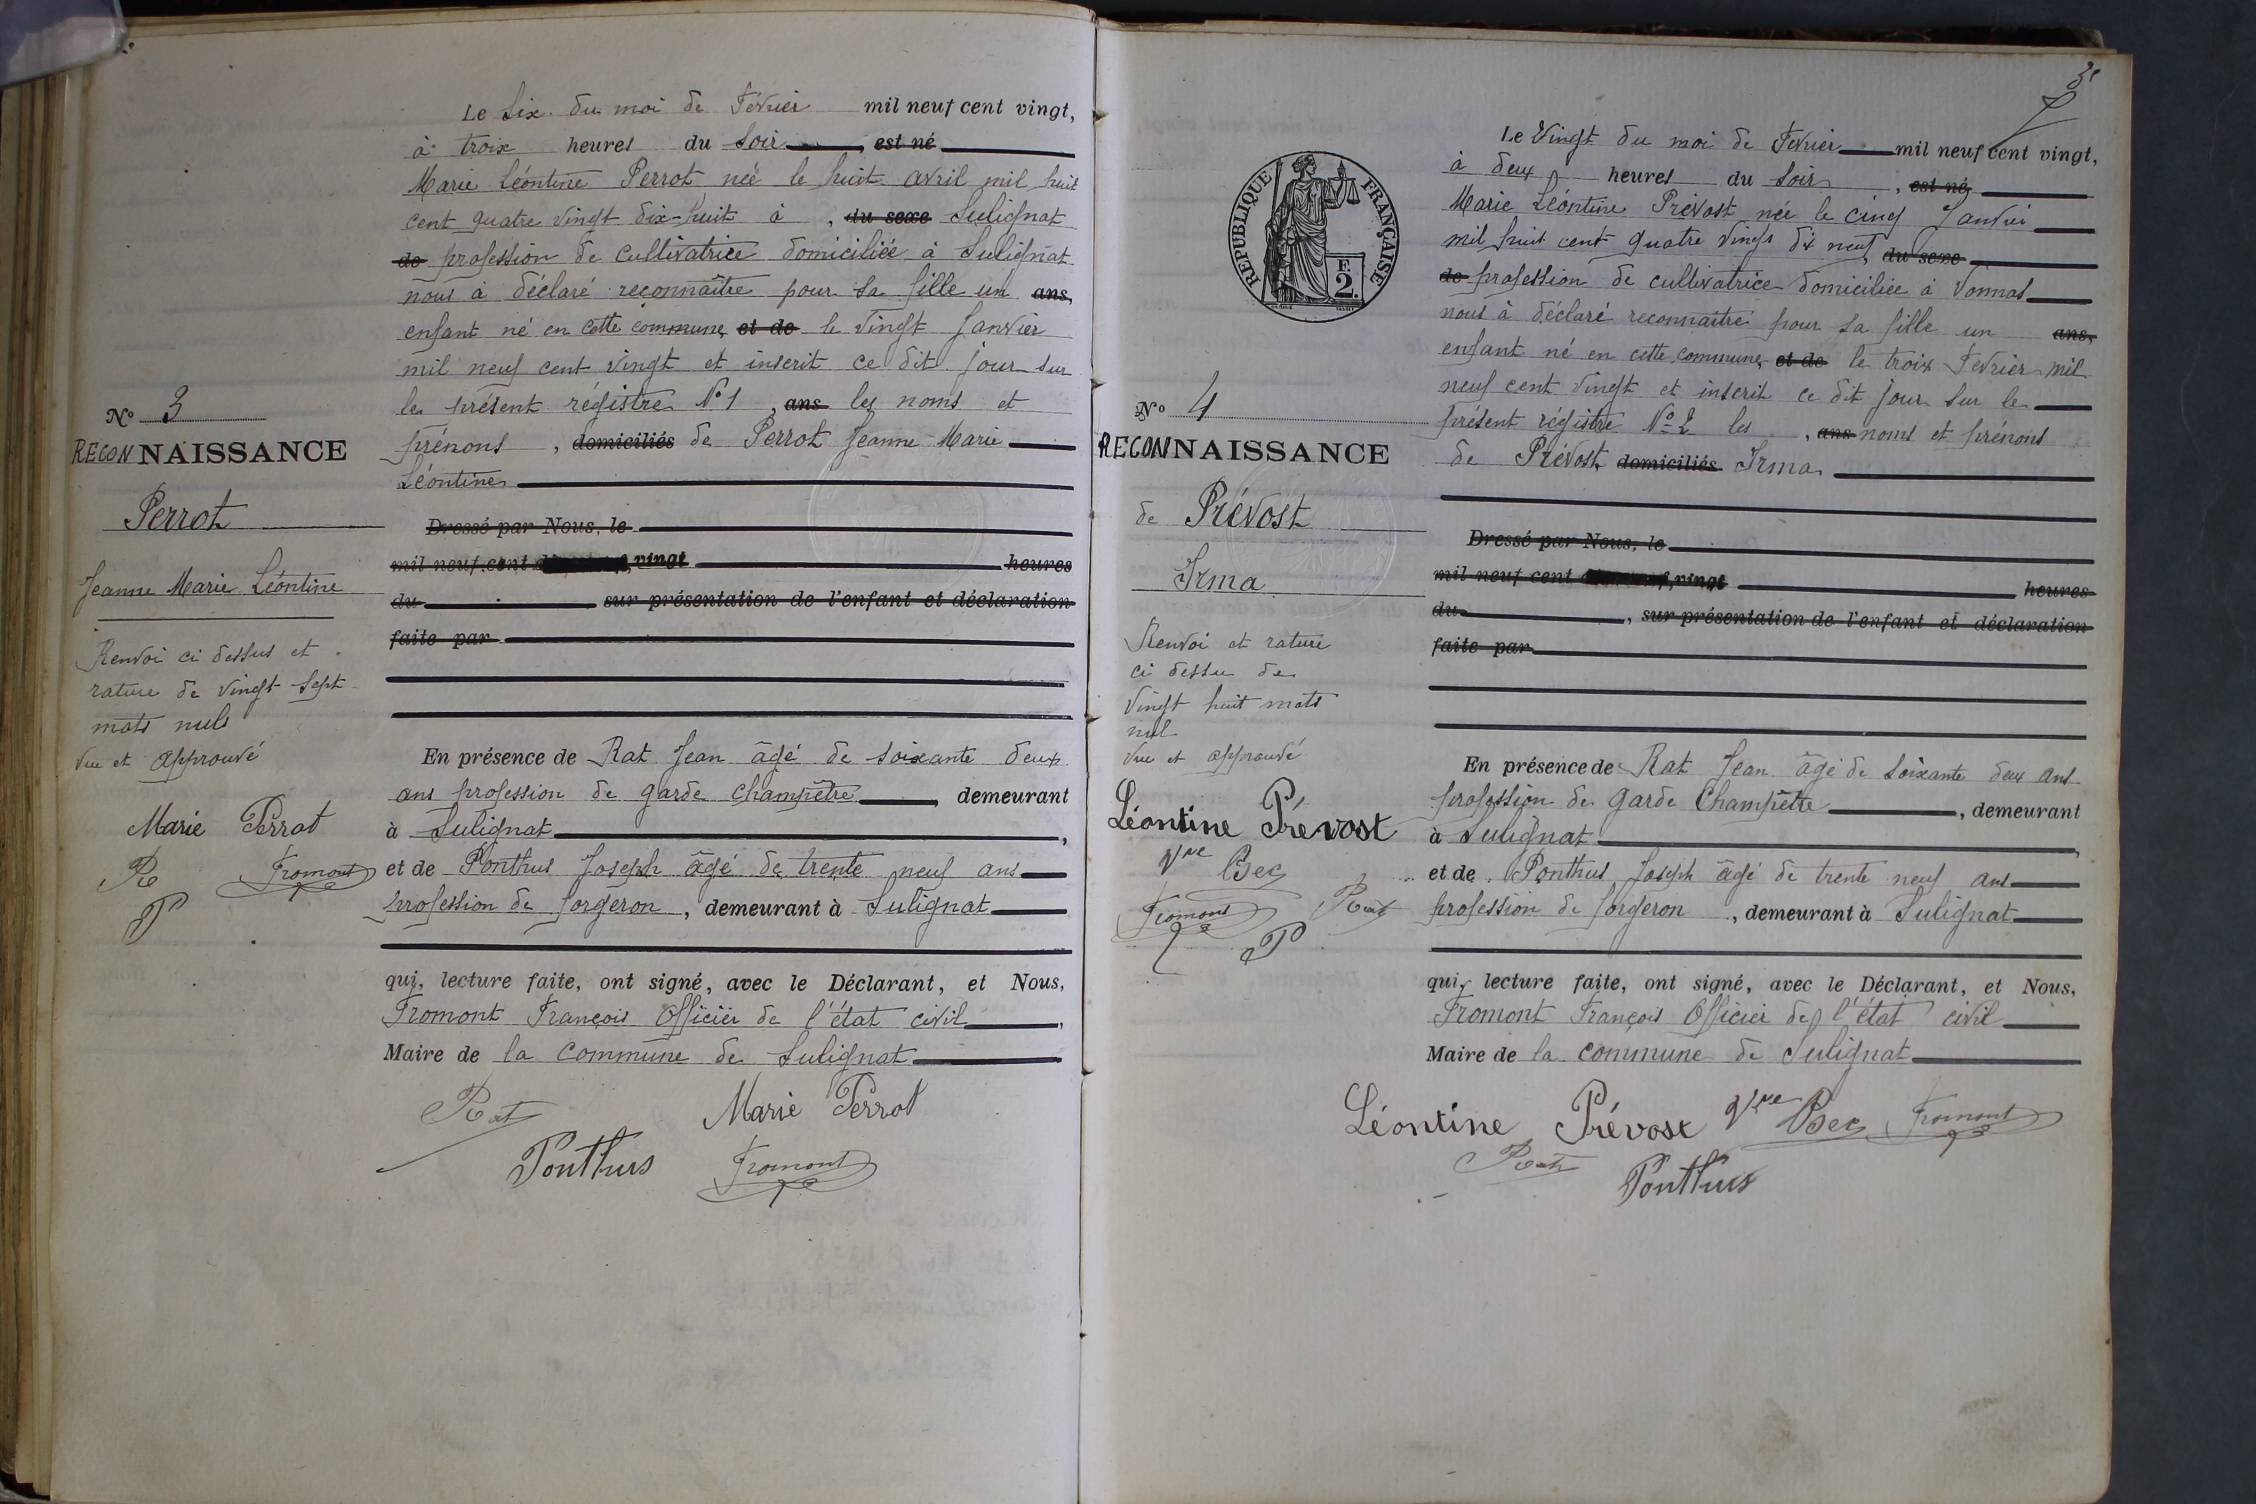 Le Six du moi de Février mil neuf cent vingt,
à trois heures du Soir, est né
Marie Léontine Perrot neé le huit avril mil huit
cent quatre vingt dix-huit à, du sexe Sulignat
de profession de cultivatrice domiciliée à Sulignat
nous à déclaré reconnaître pour sa fille un ans,
enfant né en cette commune, et de le vingt Janvier
mil neuf cent vingt et inscrit ce dit jour sur
les présent régistre N° 1, ans les noms et
prénoms, domiciliés de Perrot Jeanne Marie
Léontine
N° 3
RECONNAISSANCE
Perrot
Jeanne Marie Léontine
Renvoi ci dessus et
rature de vingt sept
mots nuls
Vu et approuvé
Marie Perrot
Ra Fromont
P
Dressé par Nous, le
mil neuf cent vingt heures
du sur présentation de l'enfant et déclaration
faite par
En présence de Rat Jean âgé de soixante deux
ans profession de garde champêtre, demeurant
à Sulignat,
et de Ponthus Joseph âgé de trente neuf ans
profession de forgeron, demeurant à Sulignat
qui, lecture faite, ont signé, avec le Déclarant, et Nous,
Fromont François Officier de l'état civil,
Maire de la commune de Sulignat
Rat Marie Perrot
Ponthus Fromont
3
Le Vingt du moi de Fevrier mil neuf cent vingt,
à deux heures du Soir, est né
Marie Léontine Prévost née le cinq Janvier
mil huit cent quatre vingt dix neuf, du sexe
de profession de cultivatrice domiciliée à Vonnas
nous à déclaré reconnaître pour sa fille un ans,
enfant né en cette commune, et de le trois Fevrier mil
neuf cent vingt et inscrit ce dit jour sur le
présent régistre N° 2 les, ans noms et prénoms
de Prévost domiciliés Irma
RÉPUBLIQUE FRANÇAISE
F.
2.
N° 4
RECONNAISSANCE
de Prévost
Irma
Renvoi et rature
ci dessu de
vingt huit mots
nul
Vu et approuvé
Léontine Prévost
Vve Bec
Fromont Rat
P
Dressé par Nous, le
mil neuf cent vingt heures
du, sur présentation de l'enfant et déclaration
faite par
En présence de Rat Jean âgé de soixante deux ans
profession de garde Champêtre, demeurant
à Sulignat,
et de Ponthus Joseph âgé de trente neuf ans
profession de forgeron, demeurant à Sulignat
qui, lecture faite, ont signé, avec le Déclarant, et Nous,
Fromont François Officier de l'état civil
Maire de la commune de Sulignat
Léontine Prévost Vve Bec Fromont
Rat
Ponthus